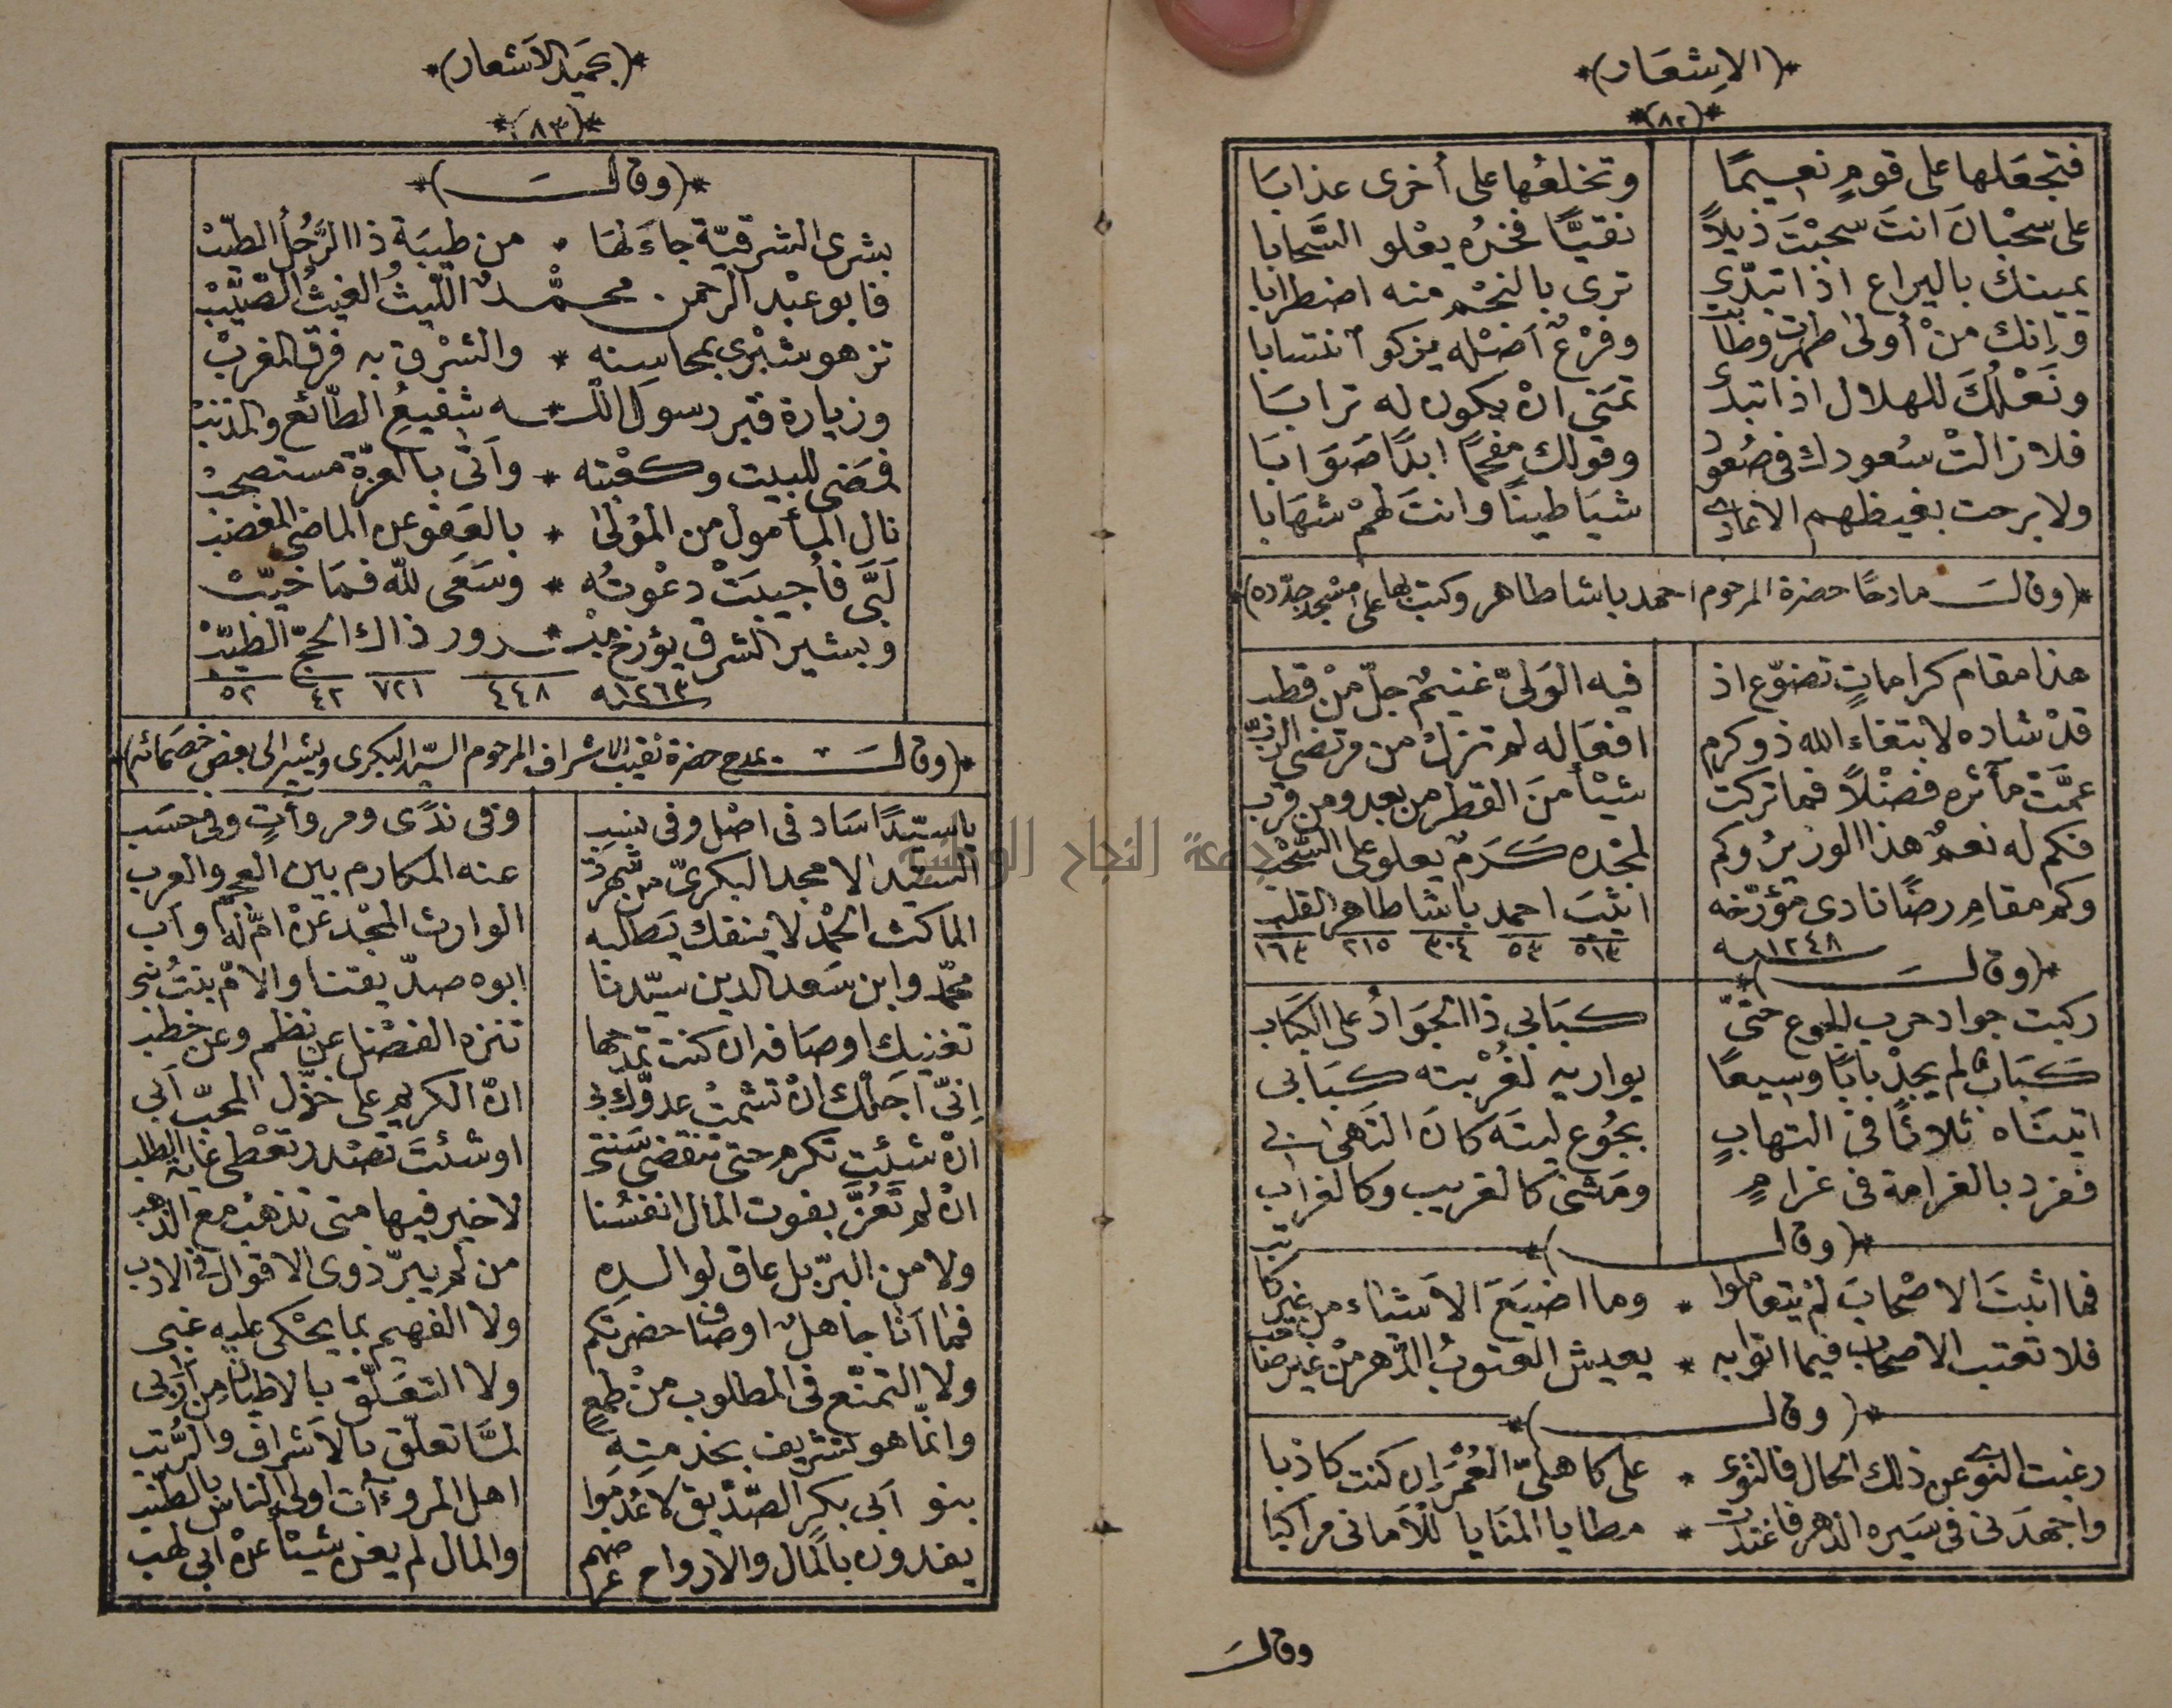 *(الاِشعَار)*
*(٨٢)*
فتجعَلها على قومٍ نعيمًا وتخلعُها على أخرى عذابَا
على سحْبانَ انتَ سحبْتَ ذيلاً نقيًّا فخرُه يعْلو السَّحابا
يمينك باليراع اذا تبدّى ترى بالنجْم منه اضطرابا
وإنك منْ أولى طهرت وطابت وفرْعٌ اَصْله يزكو انتسابا
ونَعْلُكَ للهلال اذا تبدى تمنى انْ يكون له ترابَا
فلا زالتْ سُعودك فى صُعود وقولك مفحمًا ابدًا صَوَابَا
ولا برحت بغيظهم الاعادى شيَاطينًا وانتَ لهمْ شهَابا
*(وقالَ مادحًا حضرة المرحوم احمد باشا طاهر وكتب بها على مسجد جدّده)*
هذا مقام كراماتٍ تضوّع اذ فيه الوَلىّ غنيمٌ جلّ منْ قطب
قدْ شاده لابتغاء الله ذو كرمٍ افعَاله لم تزلْ من مرتضى الربّ
عمَّتْ مآثره فضْلاً فما تركت شيْئاً منَ القطر من بعد ومن قرب
فكم له نعمٌ هذا الوزيرُ وكم لمجده كَرَمٌ يعلو على السُّحْب
وكم مقامِ رضًا نادى مؤرّخه انيْبَ احمد باشا طاهر القلب
١٢٤٨ سنه ٥١٣ ٥٣ ٣٠٤ ٢١٥ ١٦٣
*(وقالَ)*
ركبت جواد حرب الجوع حتّى كبَابى ذا الجَوَادُ على الكبَاب
كَبَابٌ لم يجدْ بابًا وسيعًا يواريه لغُرْبته كبَابى
اتيتَاه ثلاثًا فى التهابٍ بجُوع ليتَه كانَ التهَى بى
ففزد بالغرامة فى غرامٍ ومَشىٍ كالغريب وكالغراب
*(وقالَ)*
فما اثبتَ الاصْحابَ لمْ يتعاملوا * وما اضيَعَ الاَشياء من غير كاتب
فلا تعتب الاصحاب فيما اتوا به * يعيش العتوبُ الدّهر منْ غير صاحب
*(وقالَ)*
رغبت النوى عن ذلك الحال فالنوى * على كاهلىّ العُمْرَ إن كنت كاذبا
واجهدَنى فى سَيره الدهر فاغتدت * مطايا المنَايا للْاَمانى مراكبا
وقالَ
*(بحميد الاَشعار)*
*(٨٣)*
*(وقالَ)*
بشرى الشرقيّة جاءَ لهَا * من طيبَة ذا الرَّجُل الطيّبْ
فابو عبْد الرحمن محمّدٌ اللّيثُ الغيثُ الصّيِّبْ
تزهو شبْرى بمحاسنه * والشرْق به فرق المغربْ
وزيارة قبر رسول اللـه شفيعُ الطّائع والمذنبْ
فقضى للبيت وكعْبته * وَاَتى بالعزّة مستصحبْ
نال المأمول من المَوْلى * بالعَفو عن الماضى المغضبْ
لَبَّى فأجيبَتْ دعْوتُه * وسَعَى للّه فمَا خُيّبْ
وبشير الشرق يؤرخ مبـرور ذاك الحجّ الطيّبْ
١٢٦٣ سنه ٤٤٨ ٧٢١ ٤٢ ٥٢
*(وقالَ يمدح حضرة نقيب الاشراف المرحوم السيّد البكرى ويشير الى بعض خصمائه)*
يا سيّدًا سَاد فى اصْل وفى نسَبِ وفى ندًى ومروآتٍ وفى حسَب
السيّد الامجد البكرىّ من شهرتْ عنه المكارم بين العجم والعرب
الماكث الحْمد لا ينفك يَطلبه الوارث المجْد عنْ امّ له واَب
محمّد وابن سَعد الدين سيّدنا ابوه صدّيقنا والامّ بنتُ نبى
تغنيك اوصَافه ان كنت تمدحُها تنزه الفضْل عن نظم وعن خطب
اِنّى اجلّك انْ تشمتْ عدوّك بى انْ الكريم على خذل المحبّ اَبى
انْ شئت تكرم حتى تنقضى سَنتى او شئتَ تصْدر تعْطى غاية الطلب
انْ لم تعُزَّ بفوت المال انفسُنا لا خير فيها متى تذهبْ مع الذهب
ولا من البرّ بل عاق لوالده من لم يبرّ ذوى الاقوال فى الادب
فما اَنَا جاهلٌ اوصَاف حضرتكم ولا الفهيم بما يحْكى عليه غبى
ولا التمنّع فى المطلوب منْ طمعٍ ولا التعَلّق بالاطيان من اَرَبى
وانّما هو تشريف بخدمته لمَّا تعلّق بالاَشراف والرُّتب
بنو اَبى بكر الصّدّيق لا عُدموا اهل المروءآت اولى الناس بالطلب
يفدون بالمال والارواح عرضهم والمال لم يغن شيئًا عنْ ابى لهب